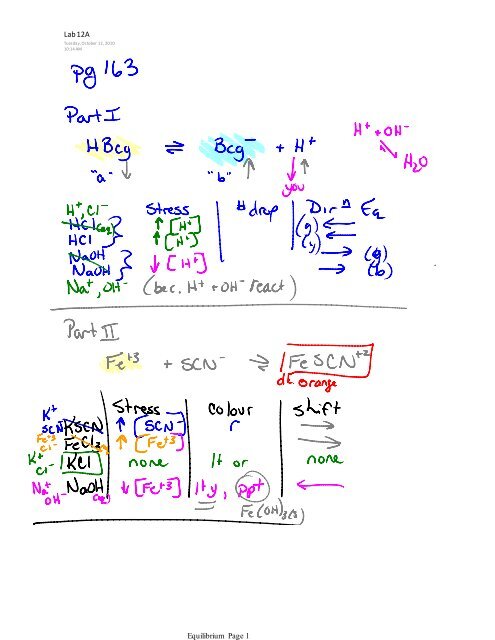 Lab 12A
Tuesday, October 13, 2020
10:14 AM
pg 163
Part I
HBcg ⇌ Bcg⁻ + H⁺
H⁺ + OH⁻
H₂O
"a" "b" you
H⁺, Cl⁻ Stress # drop Dirⁿ Eq
HCl(aq) ↑ [H⁺] (g) ←
HCl ↑ [H⁺] (y) ←
NaOH ↓ [H⁺] → (g)
NaOH → (b)
Na⁺, OH⁻ (bec. H⁺ + OH⁻ react)
Part II
Fe⁺³ + SCN⁻ ⇌ FeSCN⁺²
dk orange
Stress colour shift
K⁺ SCN⁻ KSCN ↑ [SCN⁻] r →
Fe⁺³ Cl⁻ FeCl₃ ↑ [Fe⁺³] →
K⁺ Cl⁻ KCl none lt or none
Na⁺ OH⁻ NaOH (aq) ↓ [Fe⁺³] lt y, ppt ←
Fe(OH)₃(s)
Equilibrium Page 1